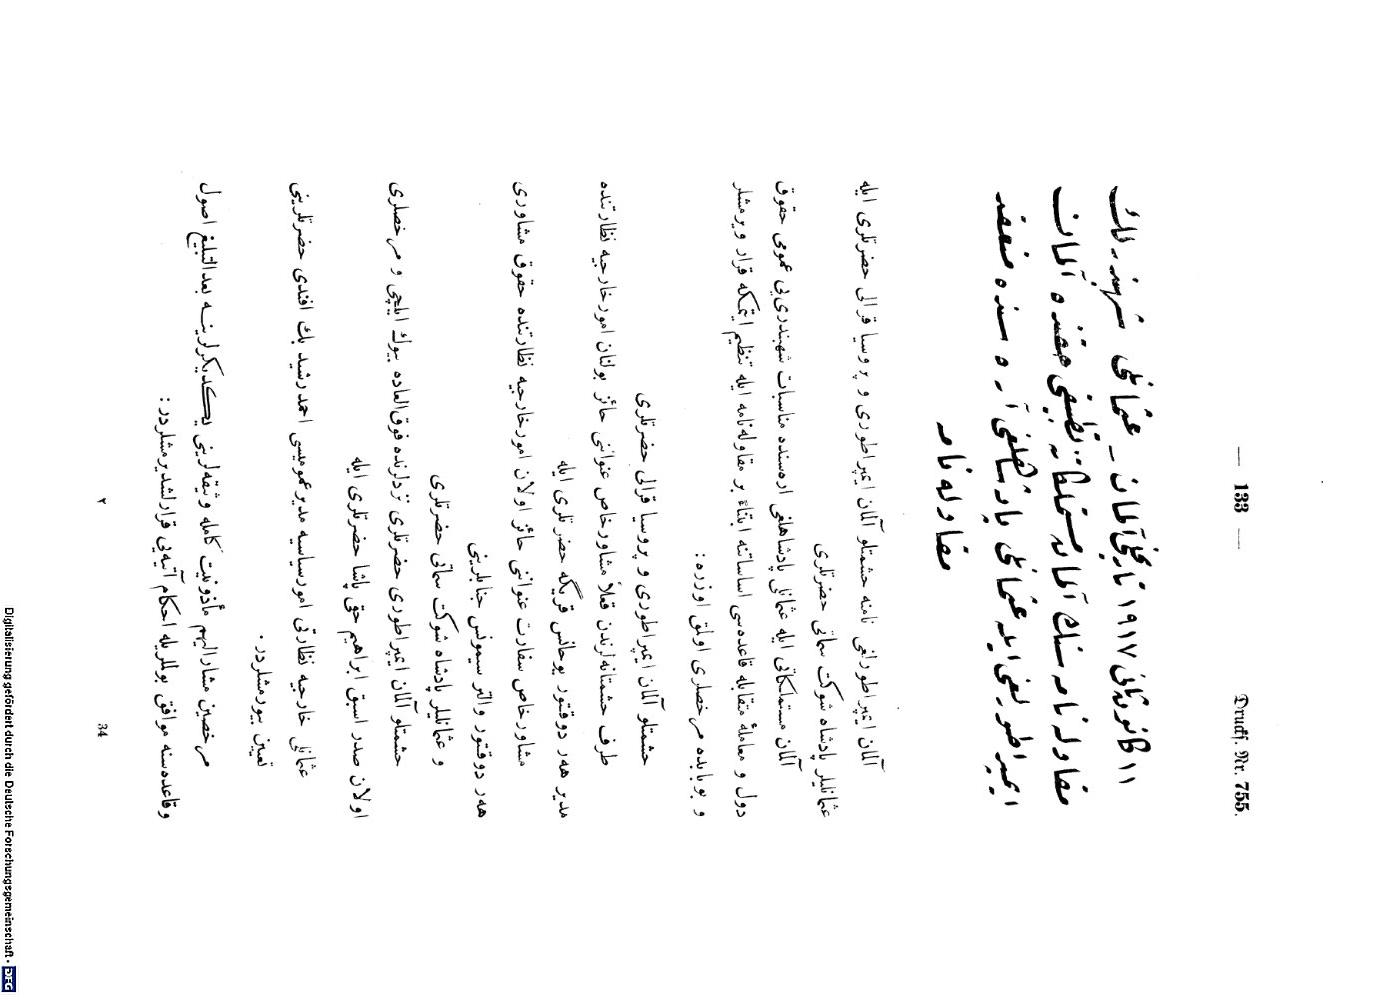 — 133 —
Drucks. Nr. 755.
١١ كانون ثانی ١٩١٧ تاريخلی آلمان ـ عثمانلی شهبندرلك
مقاوله نامه سنك آلمان مستملكاته تطبيقی حقنده آلمان
ايمپراطورلغی ايله عثمانلی پادشاهلغی آره سنده منعقد
مقاوله نامه
آلمان ايمپراطورلغی نامنه حشمتلو آلمان ايمپراطوری و پروسيا قرالی حضرتلری ايله
عثمانليلر پادشاه شوكت سماتی حضرتلری
آلمان مستملكاتی ايله عثمانلی پادشاهلغی اره سنده مناسبات شهبندری يی عمومی حقوق
دول و معاملهٔ متقابله قاعده سی اساساتنه ابتناءً بر مقاوله نامه ايله تنظيم ايتمكه قرار ويرمشلر
و بو بابده مرخصلری اولق اوزره :
حشمتلو آلمان ايمپراطوری و پروسيا قرالی حضرتلری
طرف حشمتانه لرندن فعلاً مشاور خاص عنوانی حائز بولنان امور خارجيه نظارتنده
مدير هر دوقتور يوحانس قريگه حضرتلری ايله
مشاور خاص سفارت عنوانی حائز اولان امور خارجيه نظارتنده حقوق مشاوری
هر دوقتور والتر سيمونس جنابلرينی
و عثمانليلر پادشاه شوكت سماتی حضرتلری
حشمتلو آلمان ايمپراطوری حضرتلری نزدلرنده فوق العاده بيوك ايلچی و مرخصلری
اولان صدر اسبق ابراهيم حقی پاشا حضرتلری ايله
عثمانلی خارجيه نظارتی امور سياسيه مدير عموميسی احمد رشيد بك افندی حضرتلرينی
تعيين بيورمشلردر .
مرخصين مشاراليهم مأذونيت كامله وثيقه لرينی يكديكرلرينه بعدالتبليغ اصول
وقاعده سنه موافق بولمغله احكام آتيه يی قرارلشديرمشلردر :
34
٢
Digitalisierung gefördert durch die Deutsche Forschungsgemeinschaft - DFG